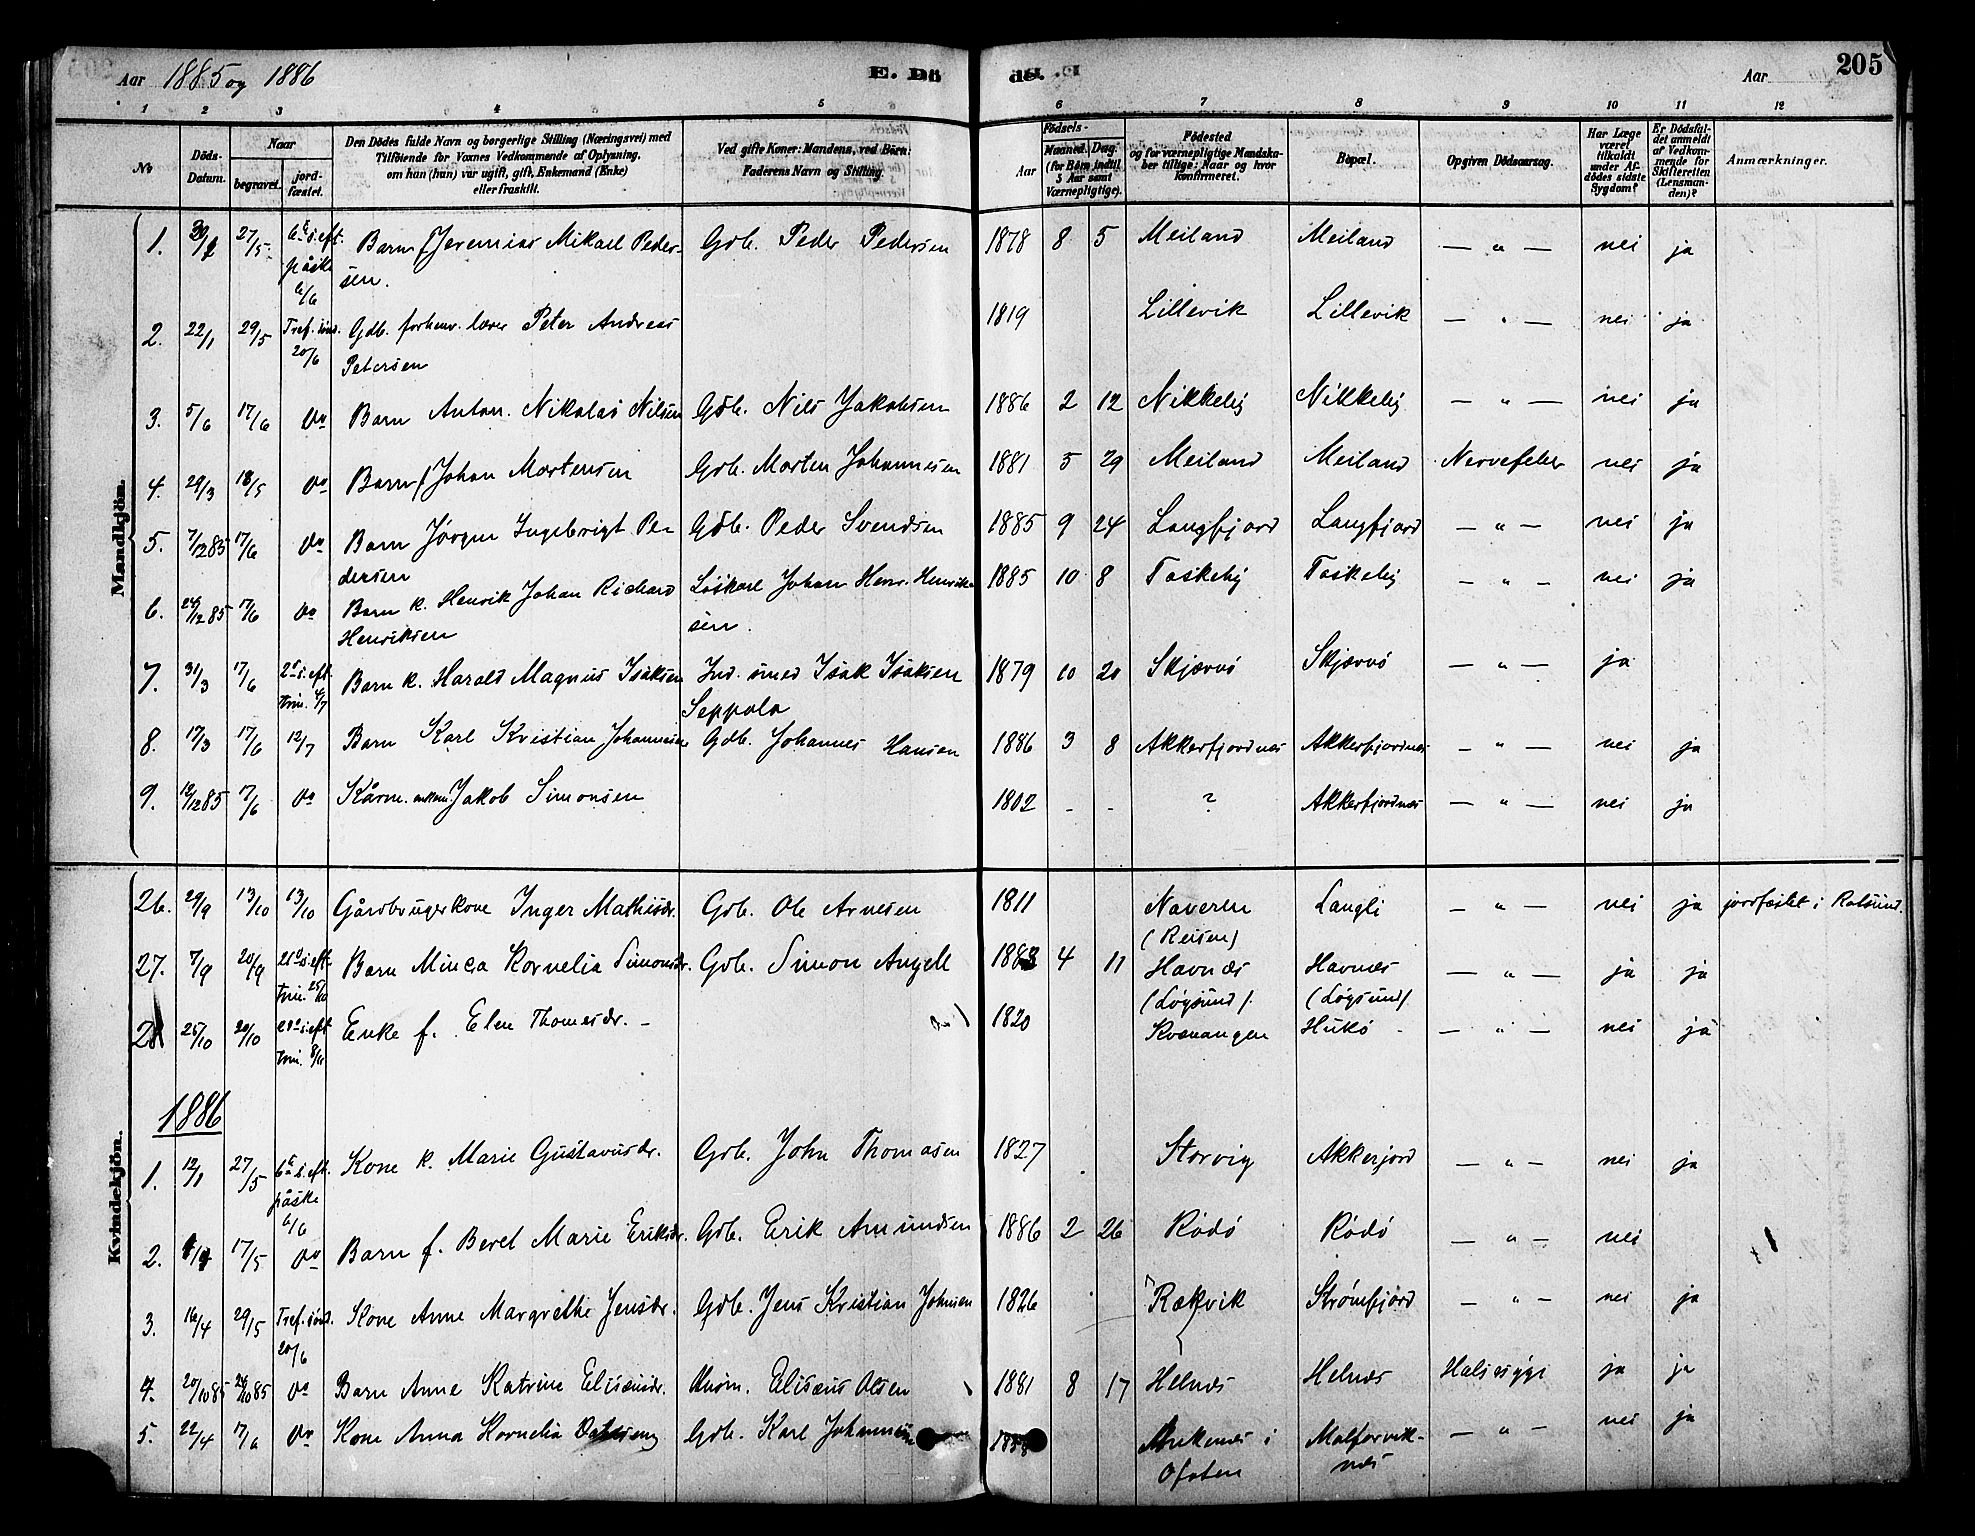 Aar 1885 og 1886
E. Dö
de.
Aar
205
1 2 3 4 5 6 7 8 9 10 11 12
No
Döds-Datum.
Naar
begravet.
jord-fæstet.
Den Dödes fulde Navn og borgerlige Stilling (Næringsvei) med
Tilföiende for Voxnes Vedkommende af Oplysning,
om han (hun) var ugift, gift, Enkemand (Enke)
eller fraskilt.
Ved gifte Koner: Mandens, ved Börn:
Faderens Navn og Stilling
Födsels-
Aar
Maaned. Dag.
(for Börn indtil
5 Aar samt
Værnepligtige).
Födested
og for værnepligtige Mandska-
ber tillige: Naar og hvor
konfirmeret.
Bopæl.
Opgiven Dödsaarsag.
Har Læge
været
tilkaldt
under Af-
dödes sidste
Sygdom?
Er Dödsfal-
det anmeldt
af Vedkom-
mende for
Skifteretten
(Lensman-
den)?
Anmærkninger.
Mandkjön.
1. 27/5. 6te s. eft. påske 6/6 Barn f Jeremias Mikael Peder-sen. Gdb. Peder Pedersen 1878 8 5 Meiland Meiland — " — nei ja
2. 22/1 29/5 Tref. sønd. 20/6 Gdb. forhenv. lærer Peter Andreas Petersen 1819 Lillevik Lillevik — " — nei ja
3. 5/6 17/6 do Barn Anton Nikolai Nilsen Gdb. Nils Jakobsen 1886 2 12 Nikkeby Nikkeby — " — nei ja
4. 29/3 18/5 do Barn f Johan Mortensen Gdb. Morten Johannesen 1881 5 29 Meiland Meiland Nervefeber nei ja
5. 7/12 85 17/6 do Barn Jørgen Ingebrigt Pe-dersen Gdb. Peder Svendsen 1885 9 24 Langfjord Langfjord — " — nei ja
6. 17/6 do Barn k. Henrik Johan Richard Henriksen Løskarl Johan Henr. Henrik-sen. 1885 10 8 Taskeby Taskeby — " — nei ja
7. 31/3 17/6 2d s. eft. trin. 4/7 Barn k. Harald Magnus Isaksen Ind. smed Isak Isaksen Seppala 1879 10 20 Skjærvø Skjærvø — " — ja
8. 17/3 17/6 12/7 Barn Karl Kristian Johannesen Gdb. Johannes Hansen 1886 3 8 Akkerfjordnes Akkerfjordnes — " — nei ja
9. 12/12 85 17/6 do Kårm. enkem. Jakob Simonsen 1802 - - ? Akkerfjordnes — " — nei ja
Kvindekjön.
26. 29/9 13/10 13/10 Gårdbrugerkone Inger Mathisdr. Gdb. Ole Arnesen 1811 Naveren (Reisen) Langli — " — nei ja jordfæstet i Rotsund.
27. 7/9 20/9 21d s. eft. trin. 25/10 Barn Minca Kornelia Simonsdr. Gdb. Simon Angell 1883 4 11 Havnæs (Løgsund). Havnæs (Løgsund). — " — ja ja
28 25/10 20/10 eft. trin. 8/11 Enke f. Elen Thomesdr. - 1820 Kvænangen Hukø — " — nei ja
1886
1. 12/1 27/5 6te s. eft. påske 6/6 Kone k. Marie Gustavusdr. Gdb. John Thomasen 1827 Storvig Akkerjord — " — nei ja
2. 17/5 do Barn f. Beret Marie Eriksdr. Gdb. Erik Amundsen 1886 2 26 Rödö Rödö — " — nei
3. 16/4 29/5 Tref. sønd. 20/6 Kone Anne Margrethe Jensdr. Gdb. Jens Kristian Johnsen 1826 Rækvik Strømfjord — " — nei ja
4. 20/10 85 24/10 85 do Barn Anne Katrine Elisæusdr. Elisæus Olsen 1881 8 17 Helnæs Helnæs Halssyge ja ja
5. 22/4 17/6 do Kone Anna Kornelia Gdb. Karl Johannesen i Ofoten Malforvik-næs — " — nei ja